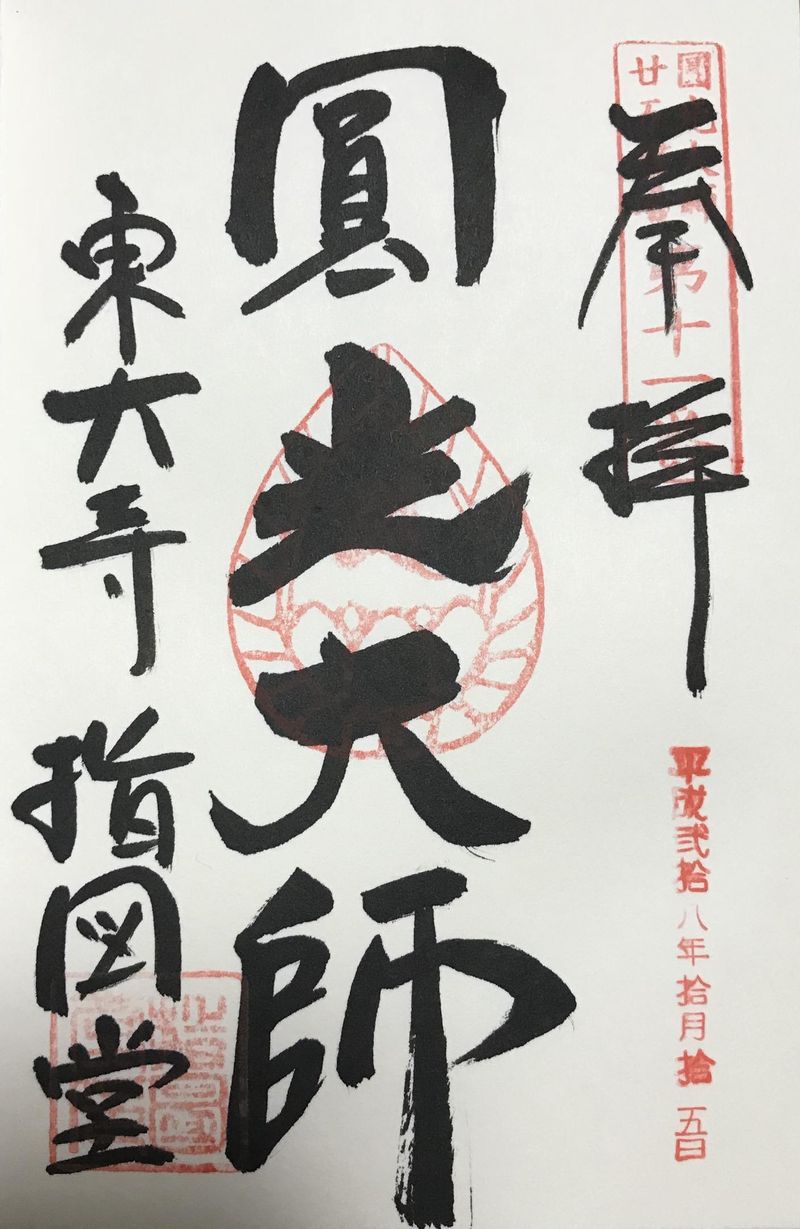 奉拝
平成弐拾八年拾月拾五日
圓光大師
東大寺
指図堂